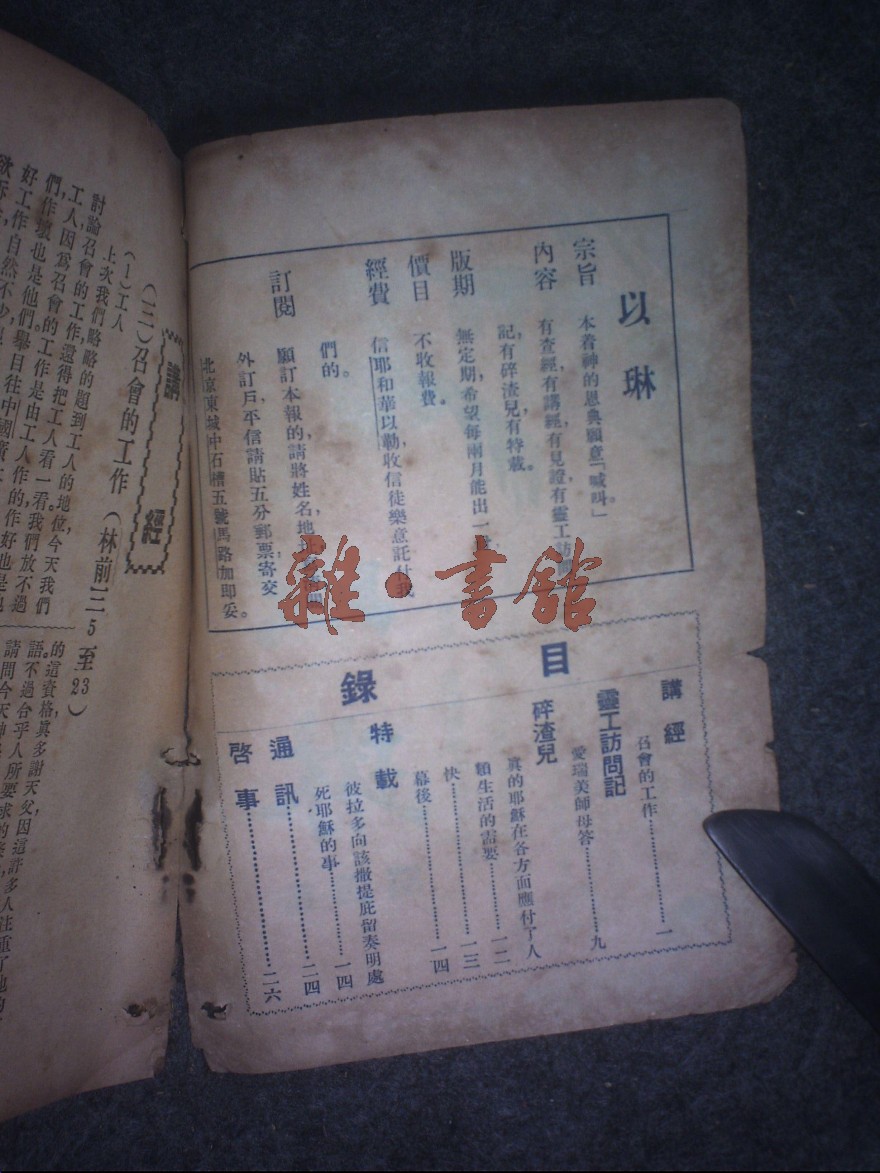 以琳
宗旨 本着神的恩典願意「喊叫」。
內容 有查經，有講經，有見證，有靈工訪問
記，有碎渣兒，有特載。
版期 無定期，希望每兩月能出一
價目 不收報費。
經費 信耶和華以勒，收信徒樂意託付我
們的。
訂閱 願訂本報的，請將姓名，地
外訂戶，平信請貼五分郵票寄交
北京東城中石槽五號馬路加即妥。
目錄
講經
召會的工作……一
靈工訪問記
愛瑞美師母答……九
碎渣兒
真的耶穌在各方面應付了人
類生活的需要……一二
快……一三
幕後……一四
特載
彼拉多向該撒提庇留奏明處
死耶穌的事……一四
通訊……二四
啓事……二六
講經
（三）召會的工作（林前三5至23）
（1）工人
上次我們略略的題到工人的地位，今天我們
討論召會的工作，還得把工人看一看。我們放不過
工人，因爲召會的工作是由工人作的，作好也是他
們，作壞也是他們。舉目往中國
好工作，自然不少，
的這資格，眞多謝天父，因這許多人注重了
語。不過合乎人所要求的
請問今天神